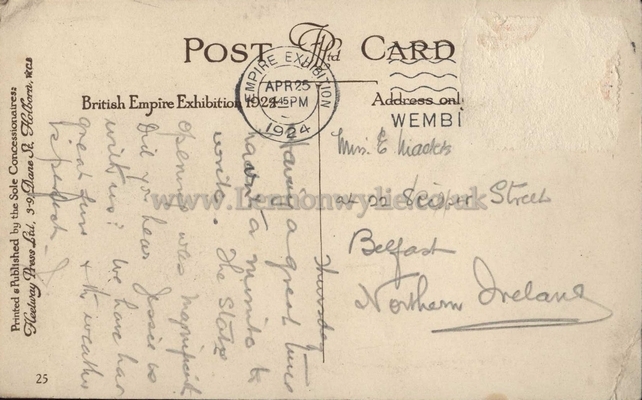 POST CARD
British Empire Exhibition 1924
Address only
EMPIRE EXHIBITION
APR 25
45 PM
1924
WEMBL
Printed & Published by the Sole Concessionaires:
Fleetway Press Ltd., 3-9, Dane St., Holborn, W.C.1
Thursday
Having a great time
haven't a minute to
write. The State
opening was magnificent
Did you hear Jessie is
with us? We have had
great fun & the weather
is perfect
Miss E
Street
Belfast
Northern Ireland
25
www.Lemonwylie.co.uk